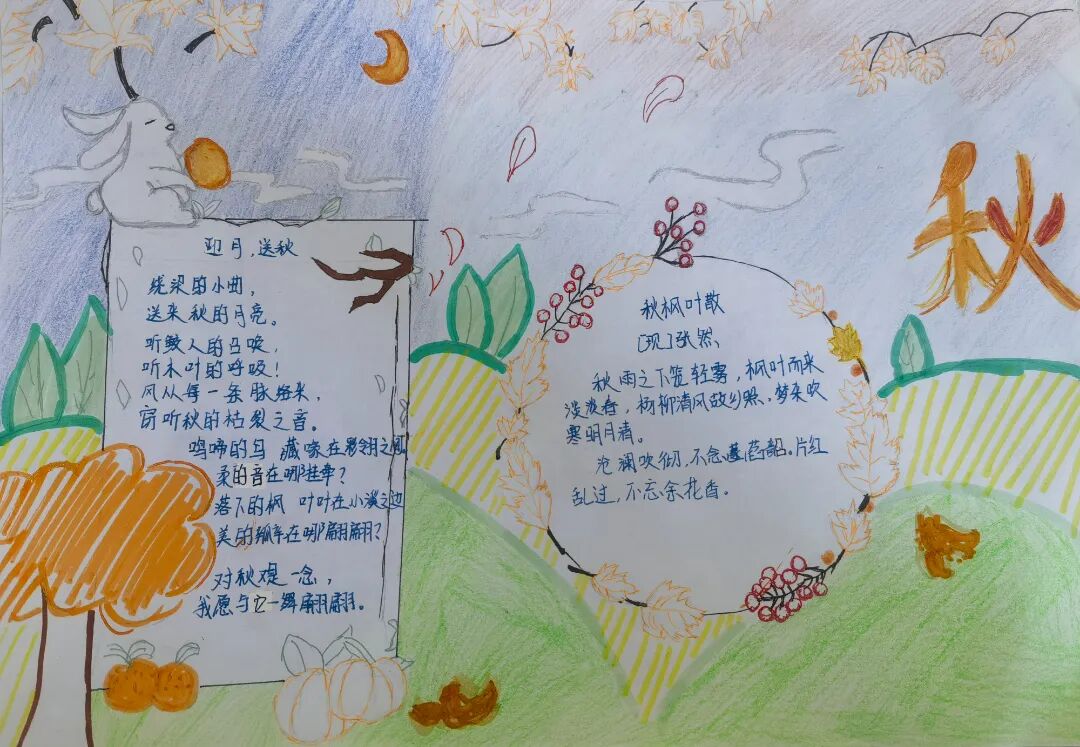 迎月,送秋
绕梁的小曲,
送来秋的月亮。
听鲛人的召唤,
听木叶的呼吸!
风从每一条脉络来,
窃听秋的枯裂之音。
鸣啼的鸟 藏喙在彩翎之间
柔的音在哪挂牵?
落下的枫 叶叶在小溪之边
美的飘零在哪翩翩?
对秋难是一念,
我愿与它一舞翩翩。
秋枫叶散
[现]张然
秋雨之下笼轻雾,枫叶而来
淡淡香,杨柳清风故乡照,梦来吹
寒明月清。
沧澜吹彻,不念 韶。片红
乱过,不忘余花香。
秋